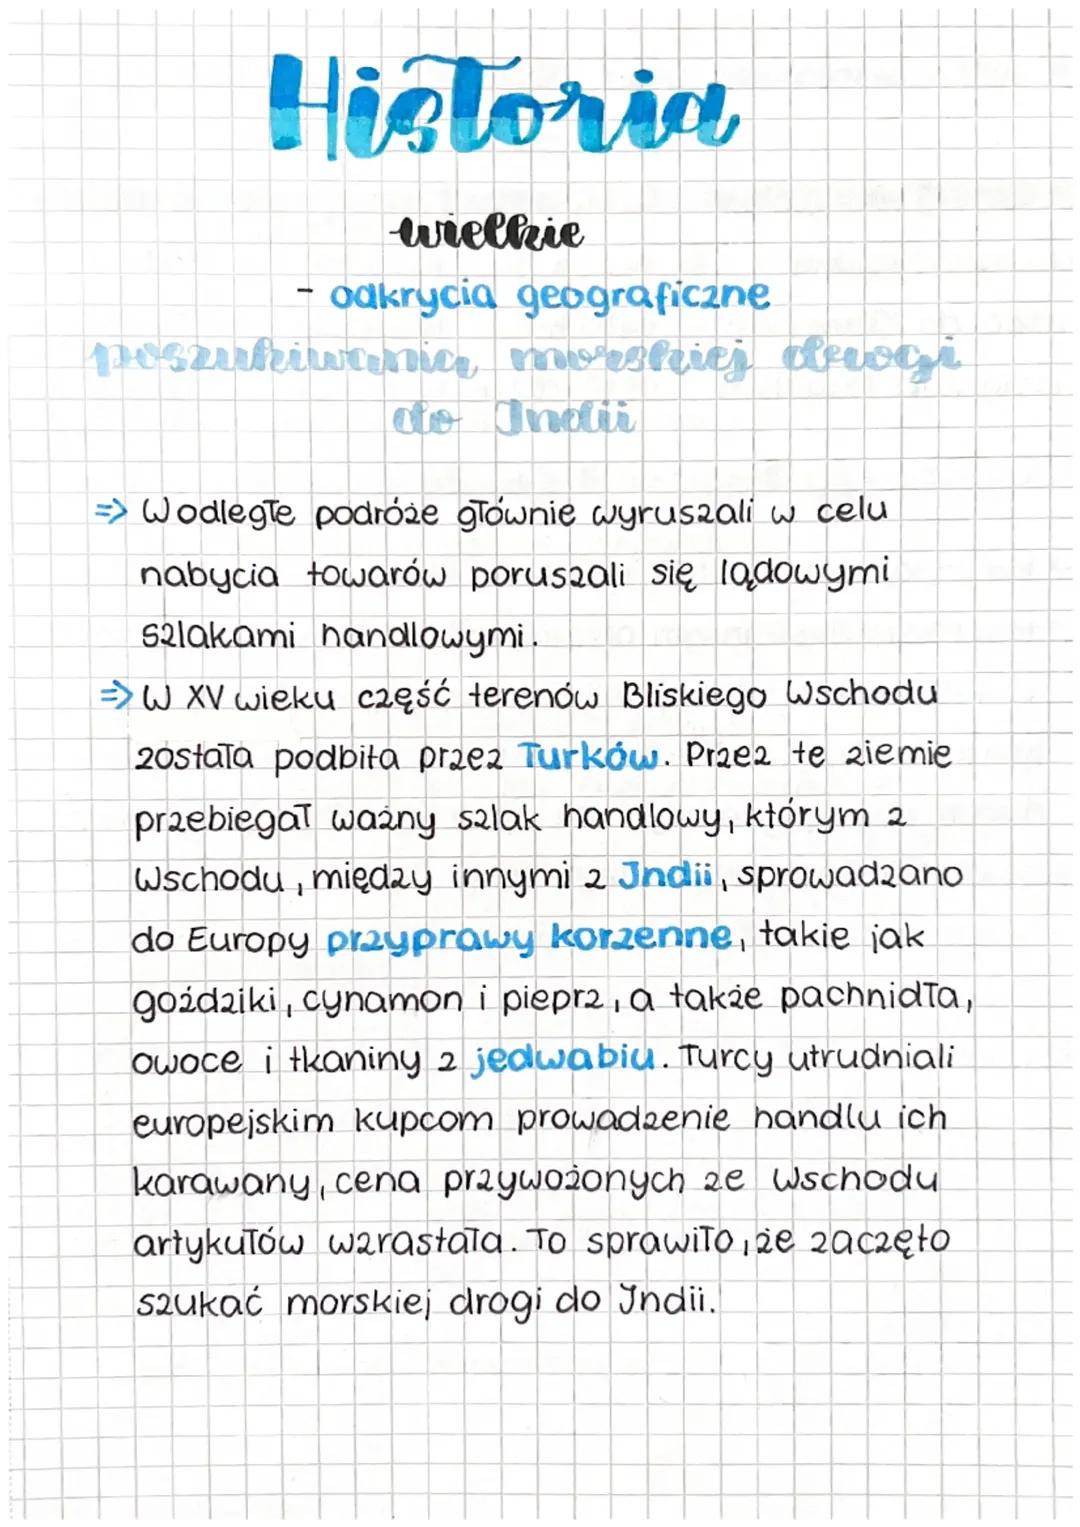 Historia
wielkie
- odkrycia geograficzne
poszukiwania morskiej drogi
do Indii
=> W odległe podróże głównie wyruszali w celu
nabycia towarów poruszali się lądowymi
szlakami handlowymi.
=> W XV wieku część terenów Bliskiego Wschodu
została podbita przez Turków. Przez te ziemie
przebiegał ważny szlak handlowy, którym z
Wschodu, między innymi z Indii, sprowadzano
do Europy przyprawy korzenne, takie jak
goździki, cynamon i pieprz, a także pachnidła,
owoce i tkaniny z jedwabiu. Turcy utrudniali
europejskim kupcom prowadzenie handlu ich
karawany, cena przywożonych ze Wschodu
artykułów wzrastała. To sprawiło, że zaczęto
szukać morskiej drogi do Indii.